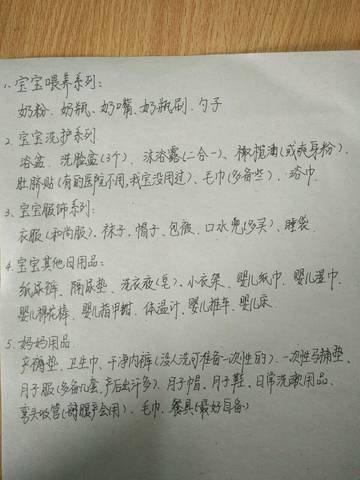 1、宝宝喂养系列:
奶粉、奶瓶、奶嘴、奶瓶刷、勺子
2、宝宝洗护系列
浴盆、洗脸盆(3个)、沐浴露(二合一)、橄榄油(或爽身粉)、
肚脐贴(有的医院不用,我宝没用过)、毛巾(多备些)、浴巾
3、宝宝服饰系列:
衣服(和尚服)、袜子、帽子、包被、口水兜(多买)、睡袋
4、宝宝其他日用品:
纸尿裤、隔尿垫、洗衣液(皂)、小衣架、婴儿纸巾、婴儿湿巾、
婴儿棉花棒、婴儿指甲钳、体温计、婴儿推车、婴儿床
5、妈妈用品
产褥垫、卫生巾、干净内裤(没人洗可准备一次性的)、一次性马桶垫、
月子服(多备几套,产后出汗多)、月子帽、月子鞋、日常洗漱用品、
弯头吸管(剖腹产会用)、毛巾、餐具(最好自备)